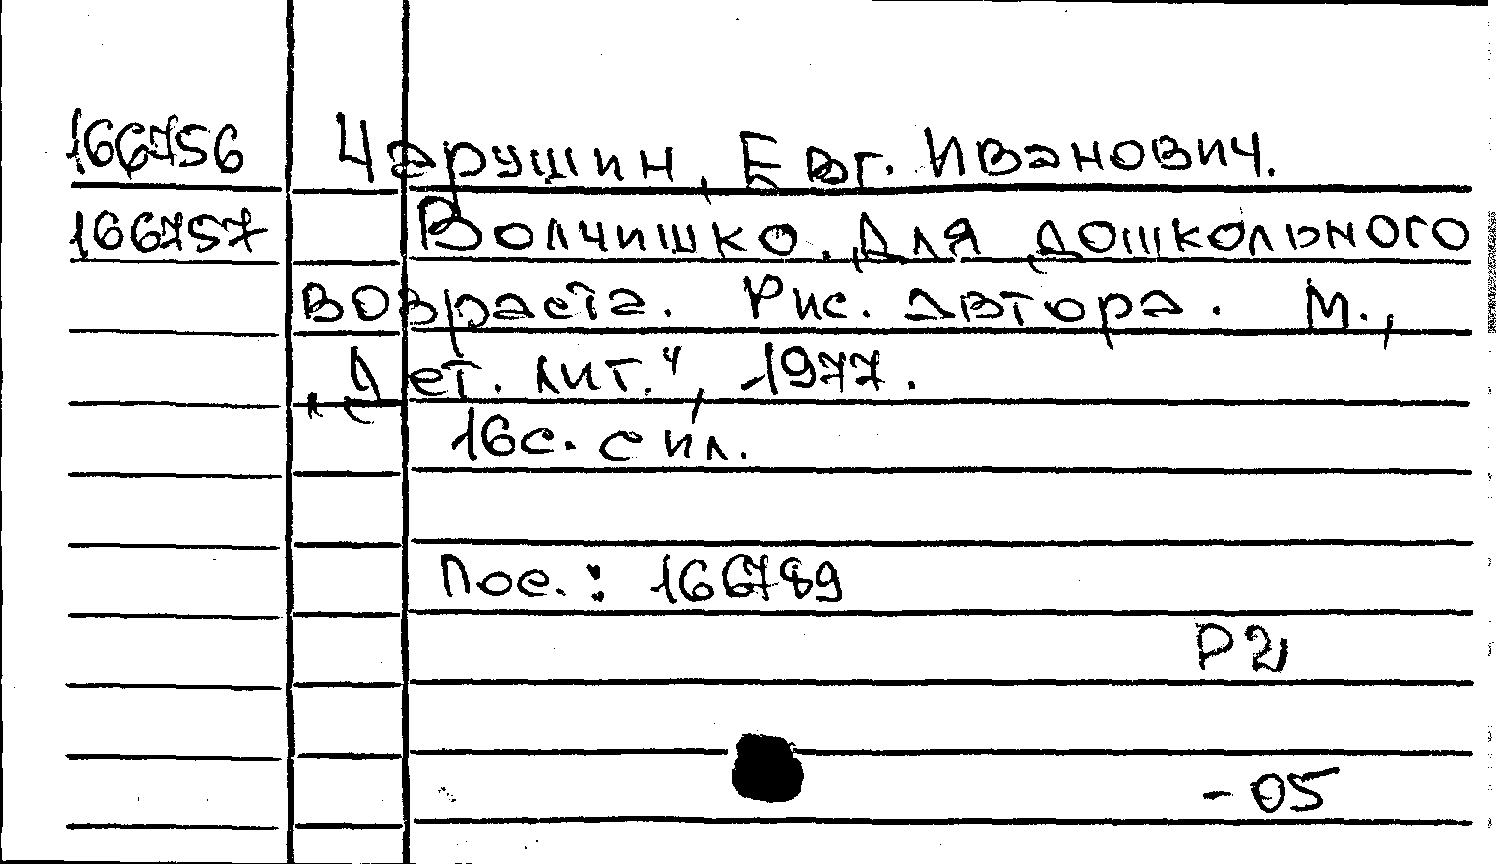 166756 Чарушин, Евг. Иванович.
166757 Волчишко. Для дошкольного
возраста. Рис. автора. М.,
„Дет. лит.“, 1977.
16с. с ил.
Пое.: 166789
Р2
-05